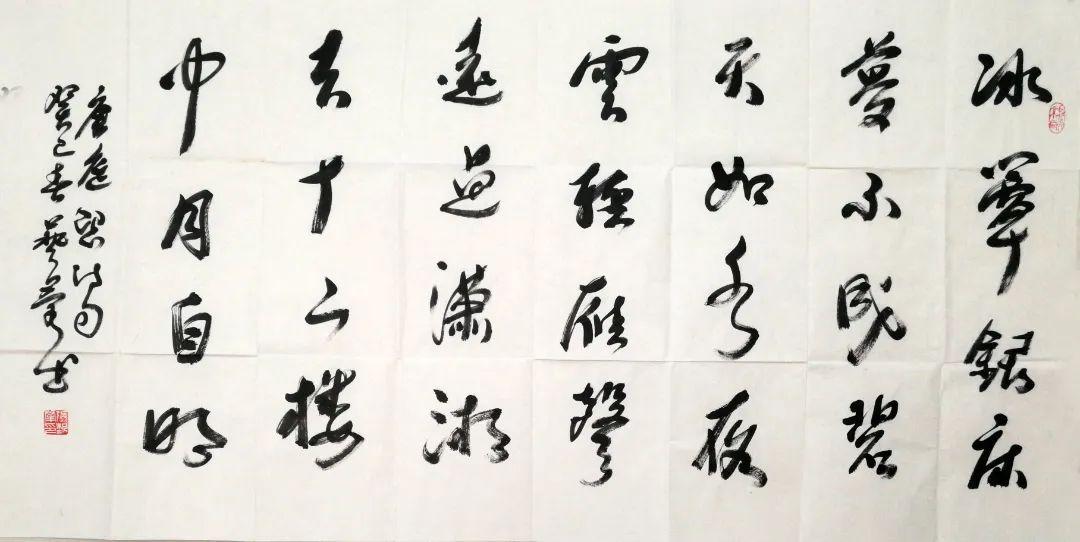 冰簟銀床
夢不成碧
天如水夜
雲輕雁聲
遠過瀟湘
去十二樓
中月自明
唐庭筠诗句
癸巳春书